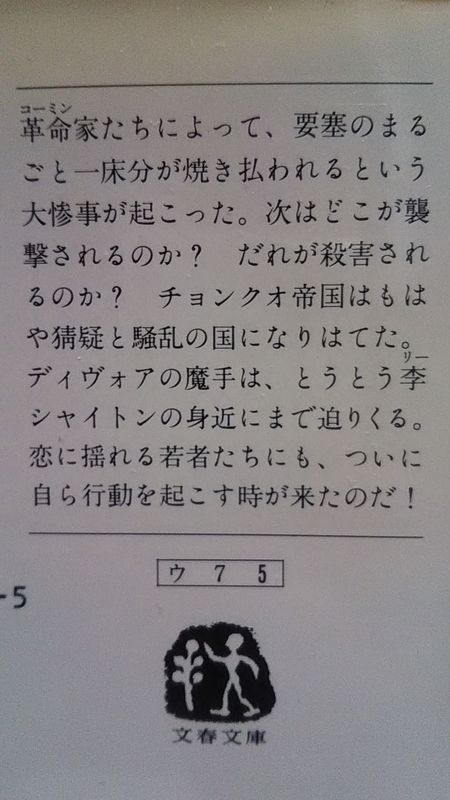 コーミン
革命家たちによって、要塞のまる
ごと一床分が焼き払われるという
大惨事が起こった。次はどこが襲
撃されるのか？　だれが殺害され
るのか？　チョンクオ帝国はもは
や猜疑と騒乱の国になりはてた。
リー
ディヴォアの魔手は、とうとう李
シャイトンの身近にまで迫りくる。
恋に揺れる若者たちにも、ついに
自ら行動を起こす時が来たのだ！
ウ 7 5
-5
文春文庫